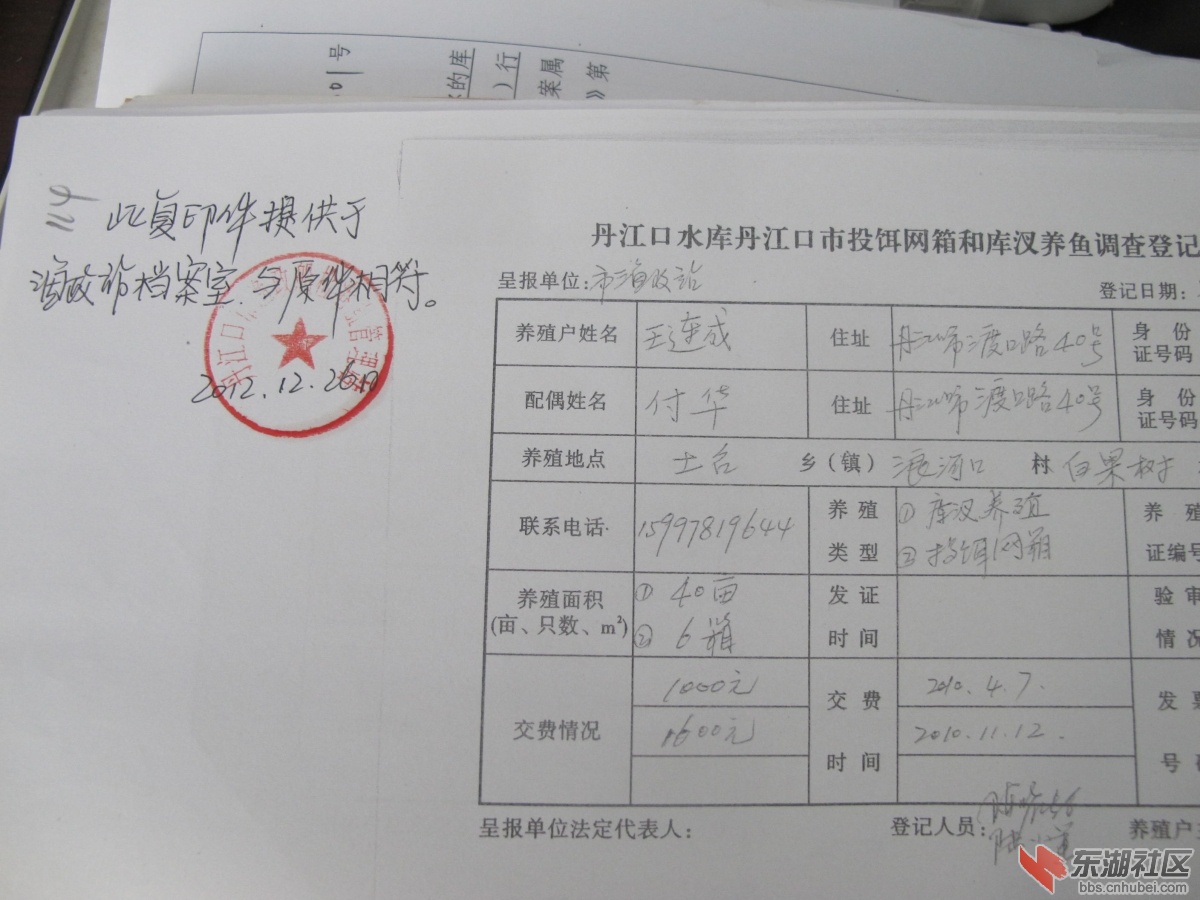 号
的库
)行
案属
》第
114
此复印件提供于
渔政站档案室.与原件相符。
丹江口
2012.12.26日
丹江口水库丹江口市投饵网箱和库汊养鱼调查登记
呈报单位:市渔政站 登记日期:
养殖户姓名 王连成 住址 丹江市渡口路40号 身份证号码
配偶姓名 付华 住址 丹江市渡口路40号 身份证号码
养殖地点 土台 乡(镇) 浪河口 村 白果树
联系电话 15997819644 养殖类型 ①库汊养殖 ②投饵网箱 养殖证编号
养殖面积(亩、只数、m²) ①40亩 ②6箱 发证时间 验审情况
交费情况 1000元 1600元 交费时间 2010.4.7. 2010.11.12. 发票号码
呈报单位法定代表人: 登记人员: 养殖户主
东湖社区
bbs.cnhubei.com